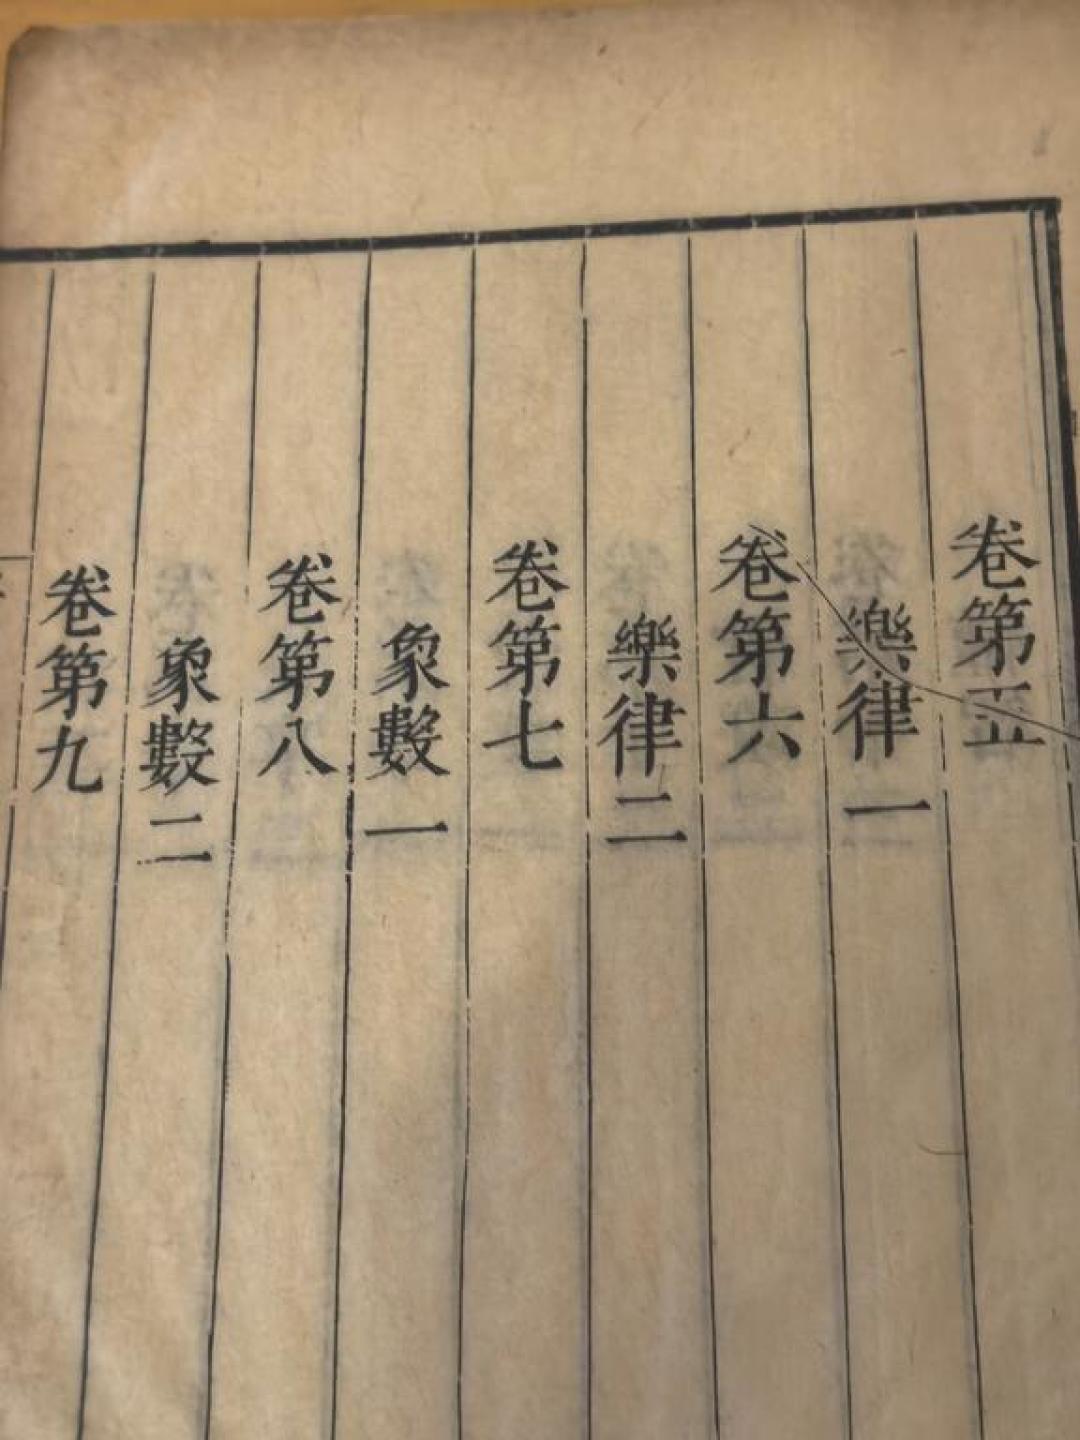 卷第五
樂律一
卷第六
樂律二
卷第七
象數一
卷第八
象數二
卷第九